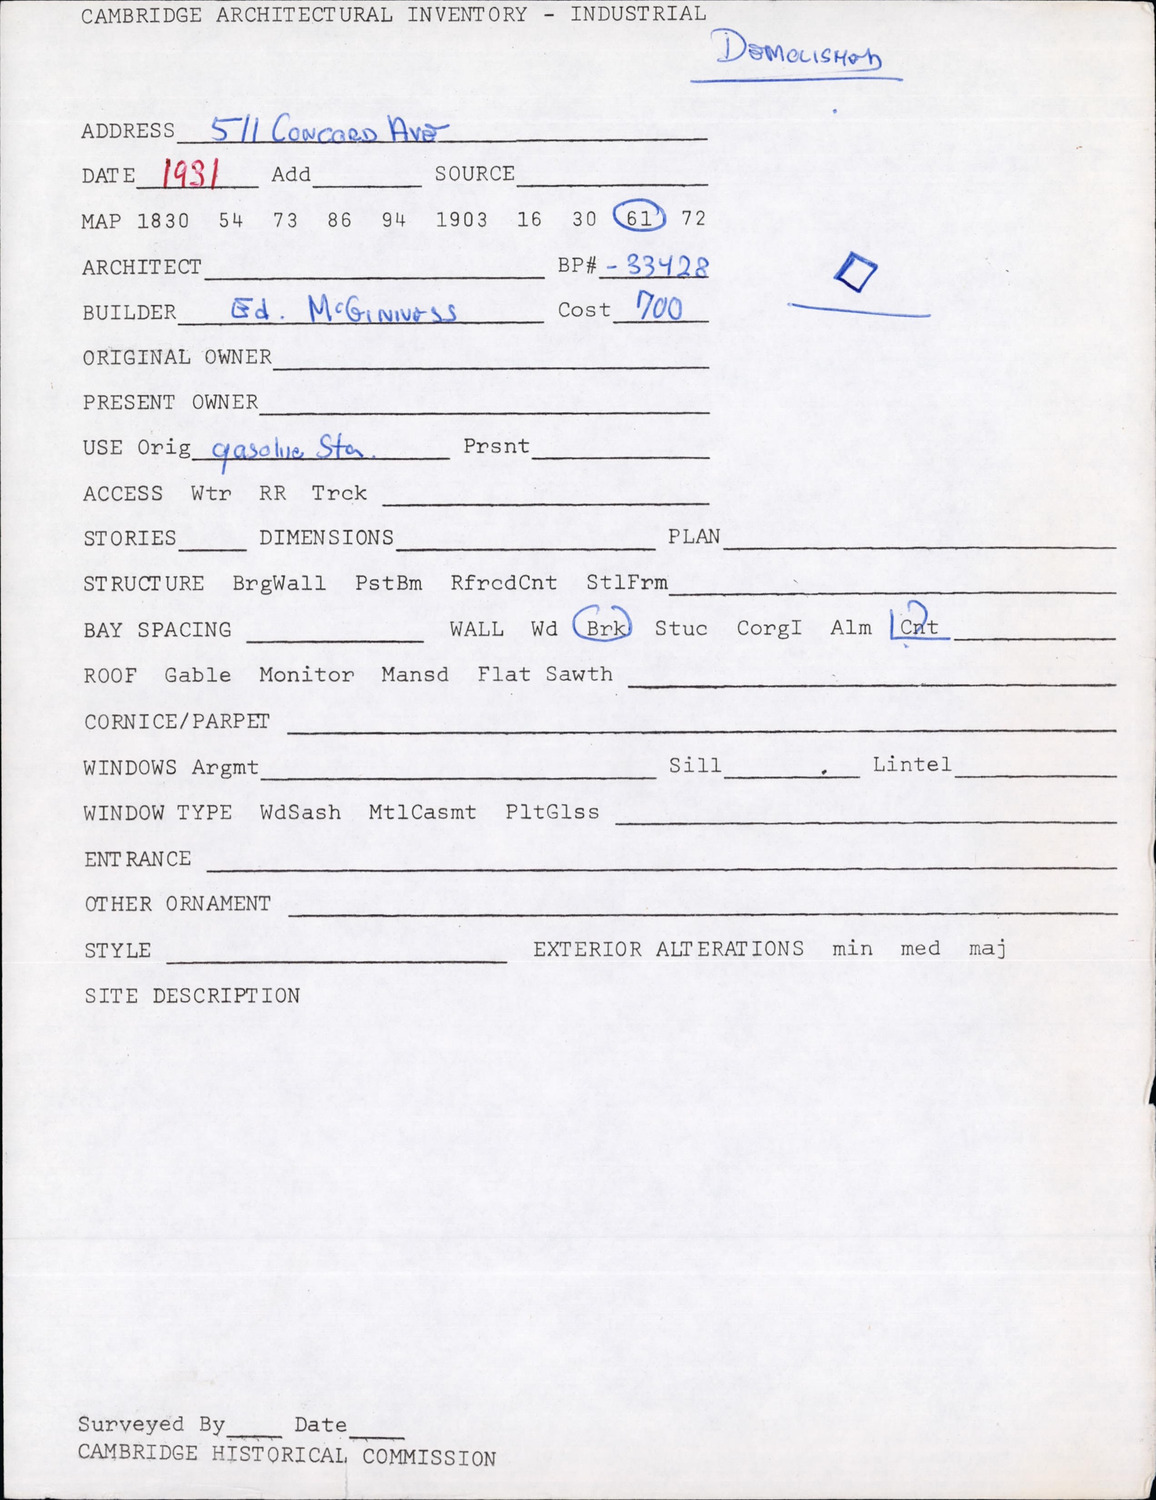 CAMBRIDGE ARCHITECTURAL INVENTORY - INDUSTRIAL
DEMOLISHED
ADDRESS 511 CONCORD AVE
DATE 1931 Add SOURCE
MAP 1830 54 73 86 94 1903 16 30 61 72
ARCHITECT BP# - 33428
BUILDER Ed. McGINNESS Cost 700
ORIGINAL OWNER
PRESENT OWNER
USE Orig gasoline Sta. Prsnt
ACCESS Wtr RR Trck
STORIES DIMENSIONS PLAN
STRUCTURE BrgWall PstBm RfrcdCnt StlFrm
BAY SPACING WALL Wd Brk Stuc CorgI Alm Cnt
ROOF Gable Monitor Mansd Flat Sawth
CORNICE/PARPET
WINDOWS Argmt Sill Lintel
WINDOW TYPE WdSash MtlCasmt PltGlss
ENTRANCE
OTHER ORNAMENT
STYLE EXTERIOR ALTERATIONS min med maj
SITE DESCRIPTION
Surveyed By Date
CAMBRIDGE HISTORICAL COMMISSION